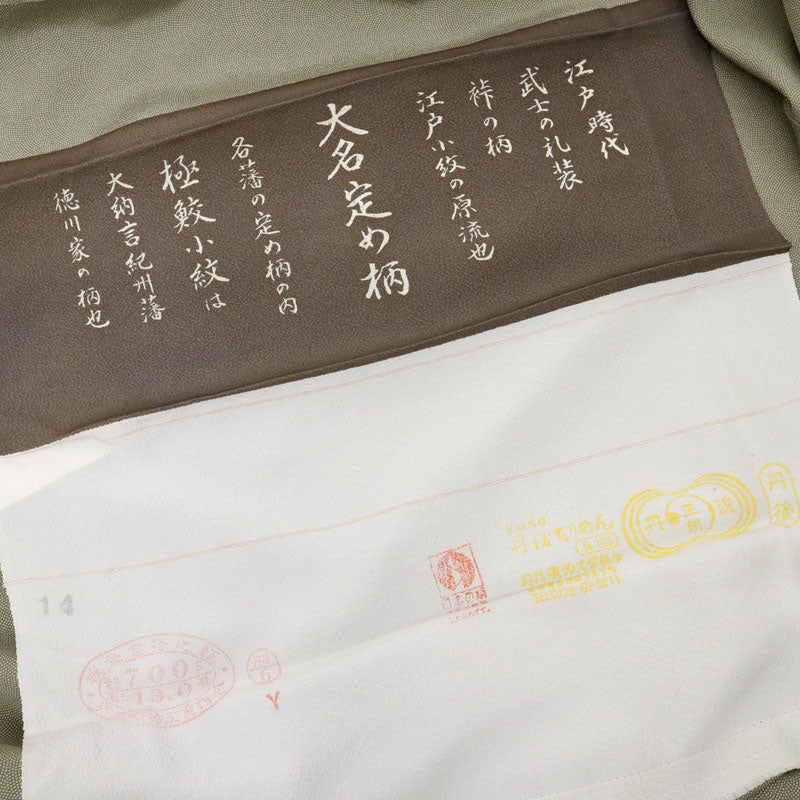 江戸時代
武士の礼装
裃の柄
江戸小紋の原流也
大名定め柄
各藩の定め柄の内
極鮫小紋は
大納言紀州藩
徳川家の柄也
丹後
14
700
Y
日本の絹